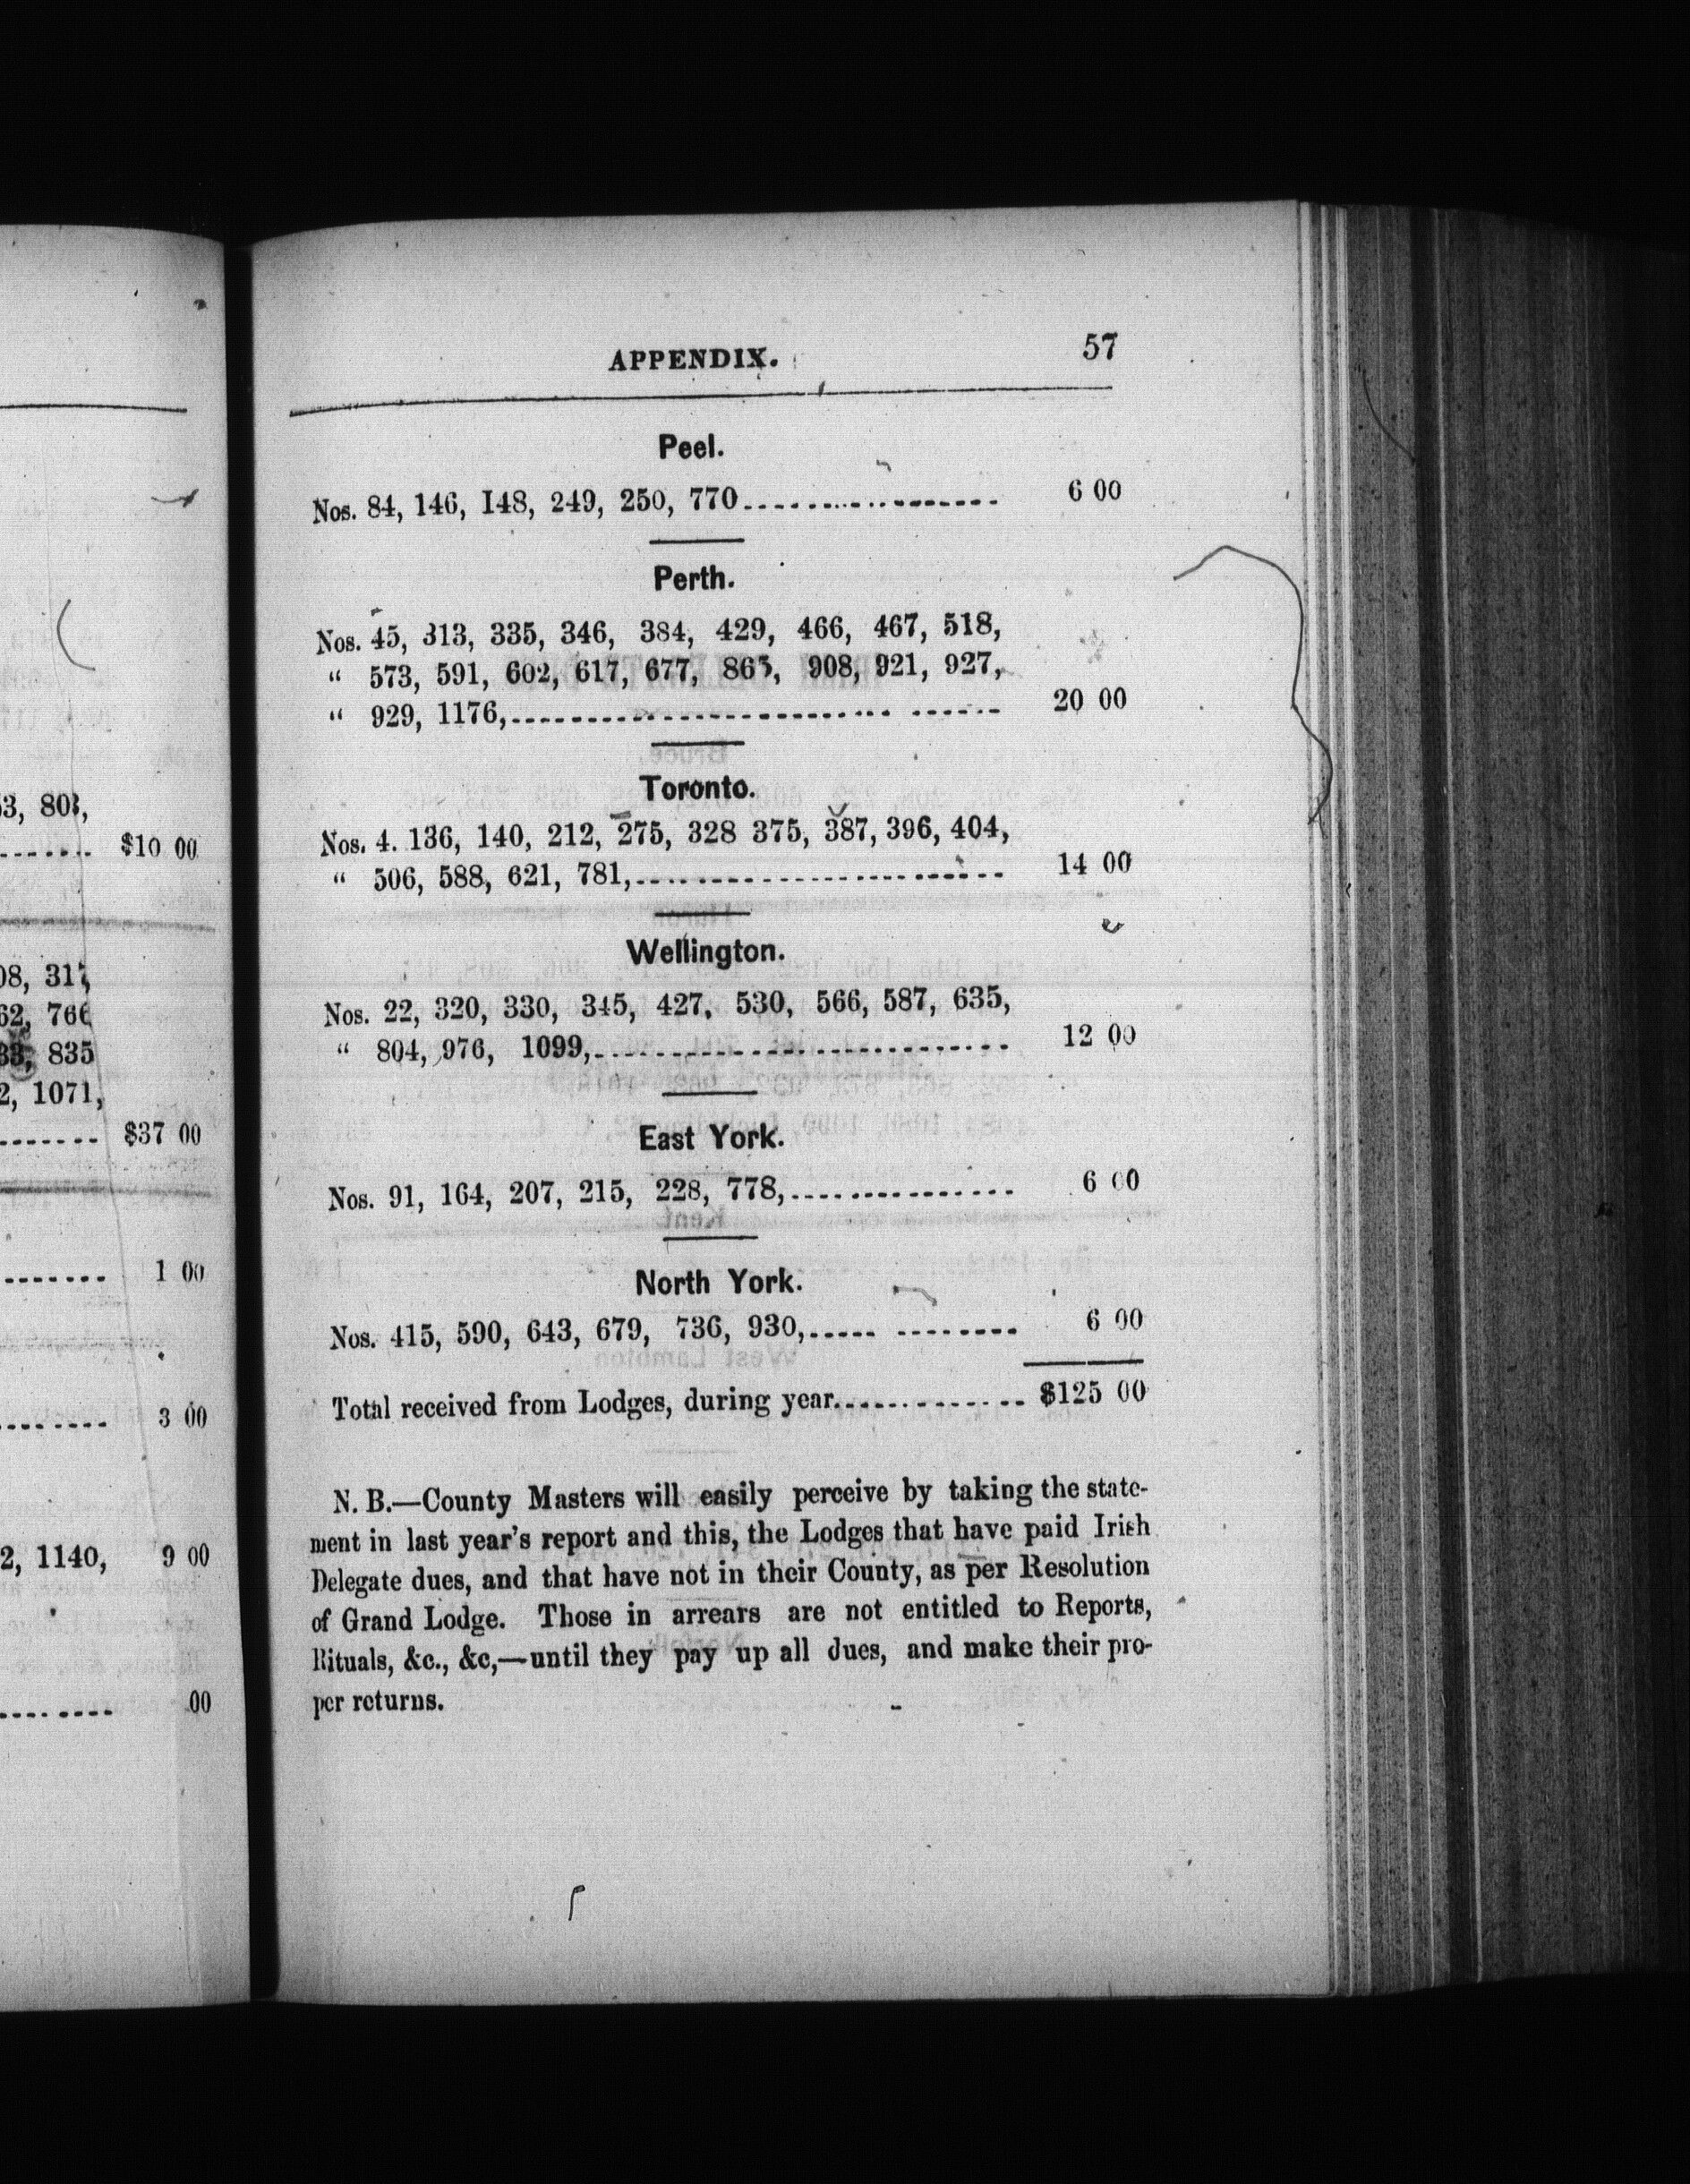 3, 803,
$10 00
08, 317,
62, 766
33, 835
2, 1071,
$37 00
1 00
3 00
2, 1140, 9 00
00
APPENDIX. 57
Peel.
Nos. 84, 146, I48, 249, 250, 770.................... 6 00
Perth.
Nos. 45, 313, 335, 346, 384, 429, 466, 467, 518,
“ 573, 591, 602, 617, 677, 865, 908, 921, 927,
“ 929, 1176,............................... 20 00
Toronto.
Nos. 4. 136, 140, 212, 275, 328 375, 387, 396, 404,
“ 506, 588, 621, 781,......................... 14 00
Wellington.
Nos. 22, 320, 330, 345, 427, 530, 566, 587, 635,
“ 804, 976, 1099,............................ 12 00
East York.
Nos. 91, 164, 207, 215, 228, 778,............... 6 00
North York.
Nos. 415, 590, 643, 679, 736, 930,..... ........ 6 00
Total received from Lodges, during year............. $125 00
N. B.—County Masters will easily perceive by taking the state-
ment in last year's report and this, the Lodges that have paid Irish
Delegate dues, and that have not in their County, as per Resolution
of Grand Lodge. Those in arrears are not entitled to Reports,
Rituals, &c., &c,—until they pay up all dues, and make their pro-
per returns.